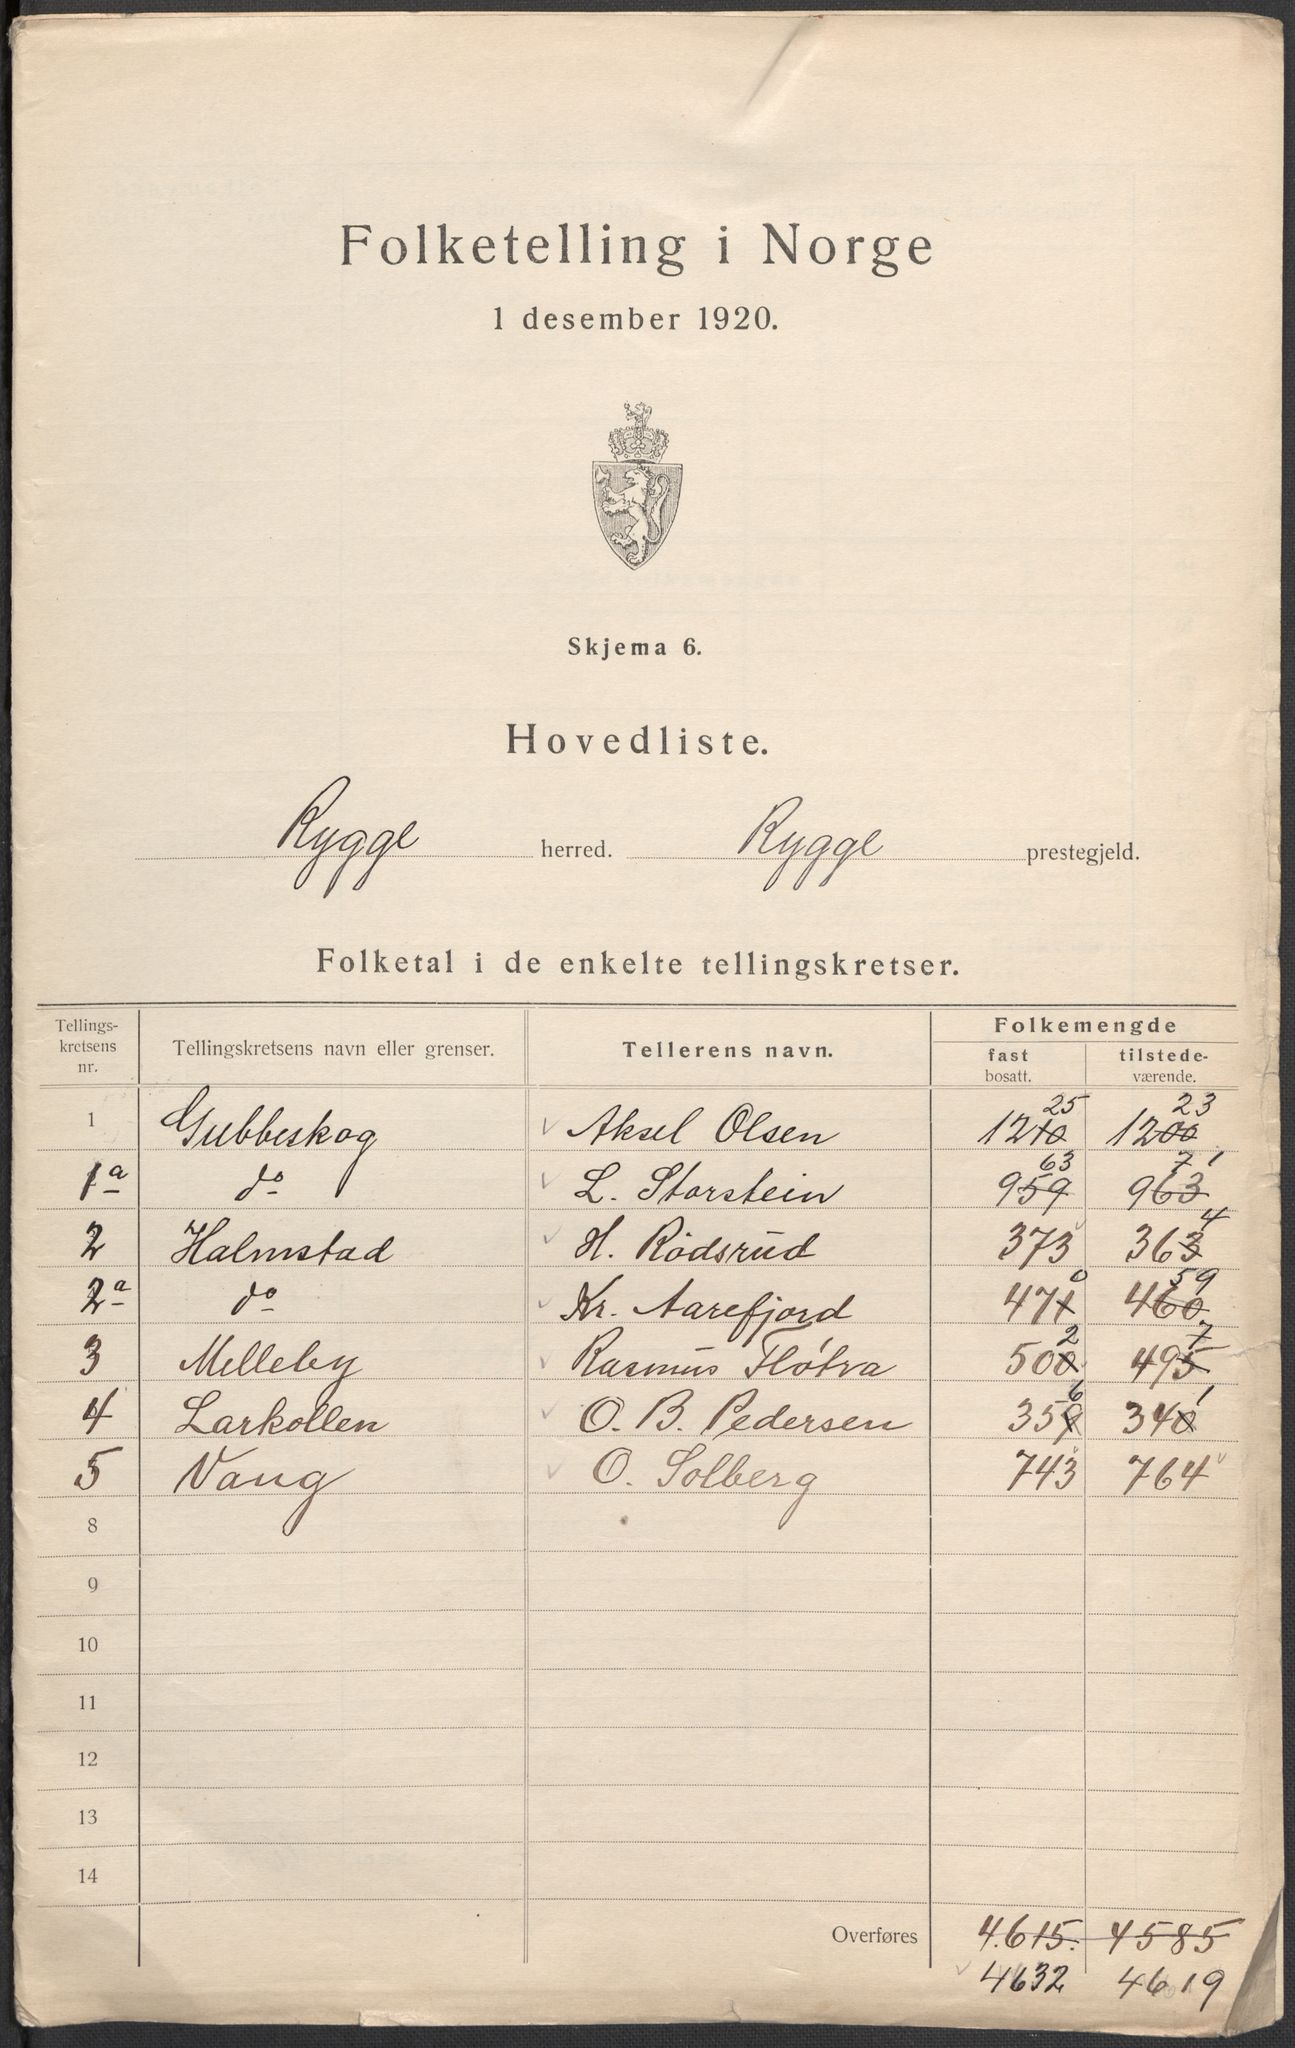 Folketelling i Norge
1 desember 1920.
Skjema 6.
Hovedliste.
Rygge herred. Rygge prestegjeld.
Folketal i de enkelte tellingskretser.
Tellings-kretsens nr. Tellingskretsens navn eller grenser. Tellerens navn. Folkemengde
fast bosatt. tilstede-værende.
25 23
1 Gubbeskog Aksel Olsen 1210 1200
63 71
1a do L. Storstein 959 963
4
2 Halmstad H. Rödsrud 373 363
0 59
2a do Kr. Aarefjord 471 460
2 7
3 Melleby Rasmus Fløtra 500 495
6 1
4 Larkollen O. B. Pedersen 359 340
5 Vang O. Solberg 743 764
8
9
10
11
12
13
14
Overføres 4.615. 4585
4632 4619